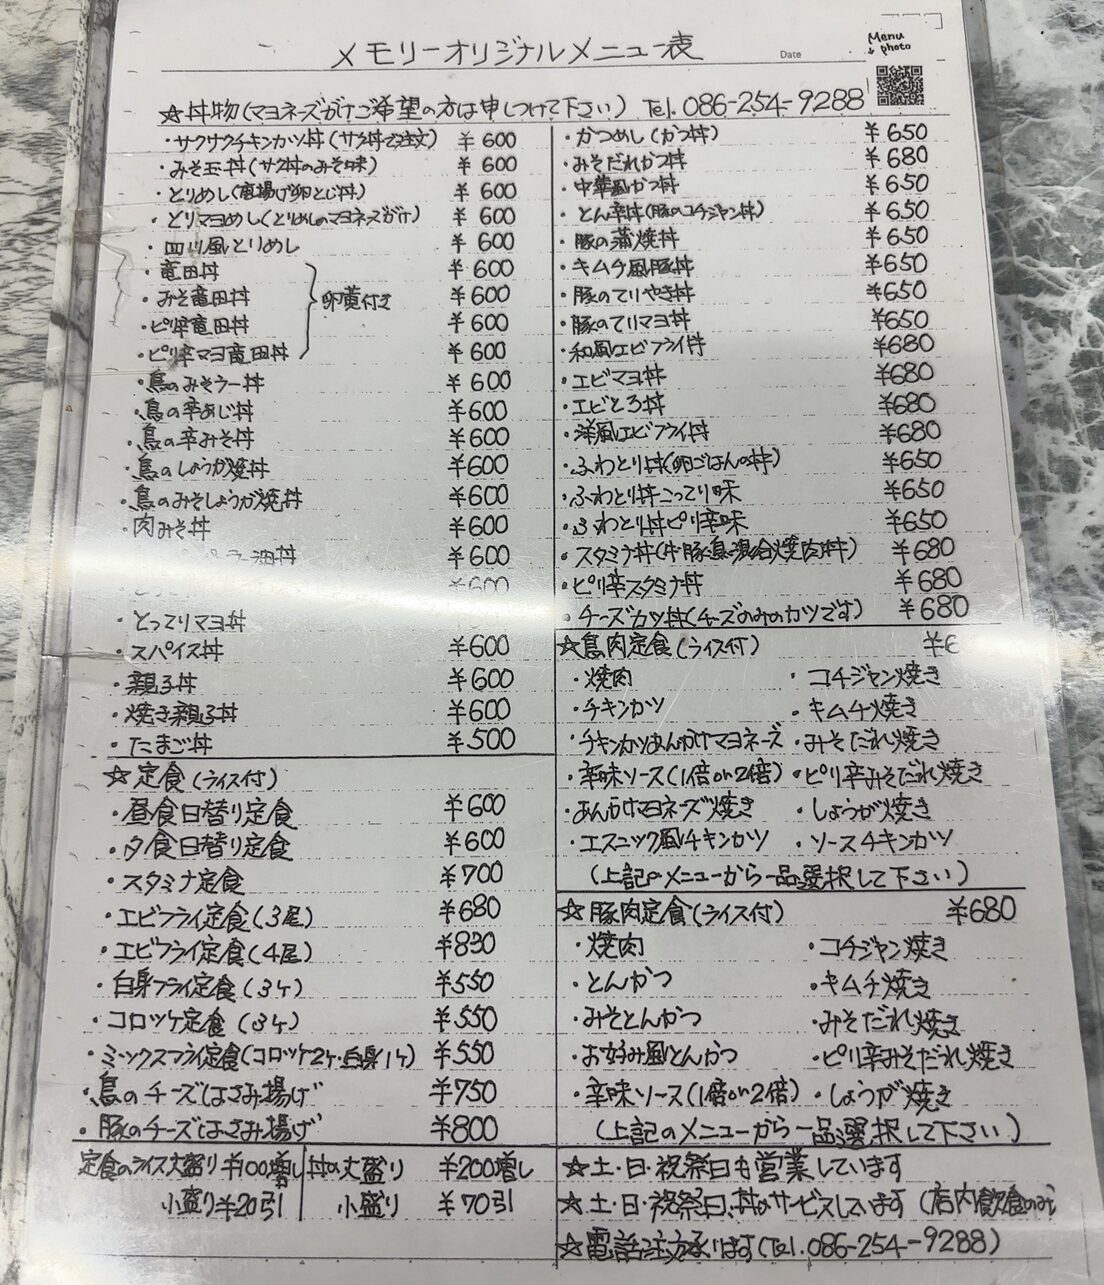 メモリーオリジナルメニュー表
Date
Menu
photo
☆丼物(マヨネーズがけご希望の方は申しつけて下さい) Tel.086-254-9288
・サクサクチキンカツ丼(サク丼で注文) ¥600
・みそ玉丼(サク丼のみそ味) ¥600
・とりめし(唐揚げ卵とじ丼) ¥600
・とりマヨめし(とりめしのマヨネーズがけ) ¥600
・四川風とりめし ¥600
・竜田丼 ¥600
・みそ竜田丼 ¥600
・ピリ辛竜田丼 ¥600
・ピリ辛マヨ竜田丼 ¥600
卵黄付き
・鳥のみそラー丼 ¥600
・鳥の辛めじ丼 ¥600
・鳥の辛みそ丼 ¥600
・鳥のしょうが焼丼 ¥600
・鳥のみそしょうが焼丼 ¥600
・肉みそ丼 ¥600
ラー油丼 ¥600
¥600
・とってりマヨ丼
・スパイス丼 ¥600
・親子丼 ¥600
・焼き親子丼 ¥600
・たまご丼 ¥500
☆定食(ライス付)
・昼食日替り定食 ¥600
・夕食日替り定食 ¥600
・スタミナ定食 ¥700
・エビフライ定食(3尾) ¥680
・エビフライ定食(4尾) ¥830
・白身フライ定食(3ケ) ¥550
・コロッケ定食(3ケ) ¥550
・ミックスフライ定食(コロッケ2ケ・白身1ケ) ¥550
・鳥のチーズはさみ揚げ ¥750
・豚のチーズはさみ揚げ ¥800
定食のライス大盛り ¥100増し
小盛り¥20引
丼の大盛り ¥200増し
小盛り ¥70引
・かつめし(かつ丼) ¥650
・みそだれかつ丼 ¥680
・中華風かつ丼 ¥650
・とん辛丼(豚のコチジャン丼) ¥650
・豚の蒲焼丼 ¥650
・キムチ風豚丼 ¥650
・豚のてりやき丼 ¥650
・豚のてりマヨ丼 ¥650
・和風エビフライ丼 ¥680
・エビマヨ丼 ¥680
・エビとろ丼 ¥680
・洋風エビフライ丼 ¥680
・ふわとり丼(卵ごはんの丼) ¥650
・ふわとり丼こってり味 ¥650
・ふわとり丼ピリ辛味 ¥650
・スタミナ丼(牛・豚・鳥混合焼肉丼) ¥680
・ピリ辛スタミナ丼 ¥680
・チーズカツ丼(チーズのみのカツです) ¥680
☆鳥肉定食(ライス付) ¥6
・焼肉 ・コチジャン焼き
・チキンカツ ・キムチ焼き
・チキンカツあんかけマヨネーズ ・みそだれ焼き
・辛味ソース(1倍or2倍) ・ピリ辛みそだれ焼き
・あんかけマヨネーズ焼き ・しょうが焼き
・エスニック風チキンカツ ・ソースチキンカツ
(上記のメニューから一品選択して下さい)
☆豚肉定食(ライス付) ¥680
・焼肉 ・コチジャン焼き
・とんかつ ・キムチ焼き
・みそとんかつ ・みそだれ焼き
・お好み風とんかつ ・ピリ辛みそだれ焼き
・辛味ソース(1倍or2倍) ・しょうが焼き
(上記のメニューから一品選択して下さい)
☆土・日・祝祭日も営業しています
☆土・日・祝祭日、丼かサービスしています(店内飲食のみ)
☆電話注文承ります(Tel.086-254-9288)